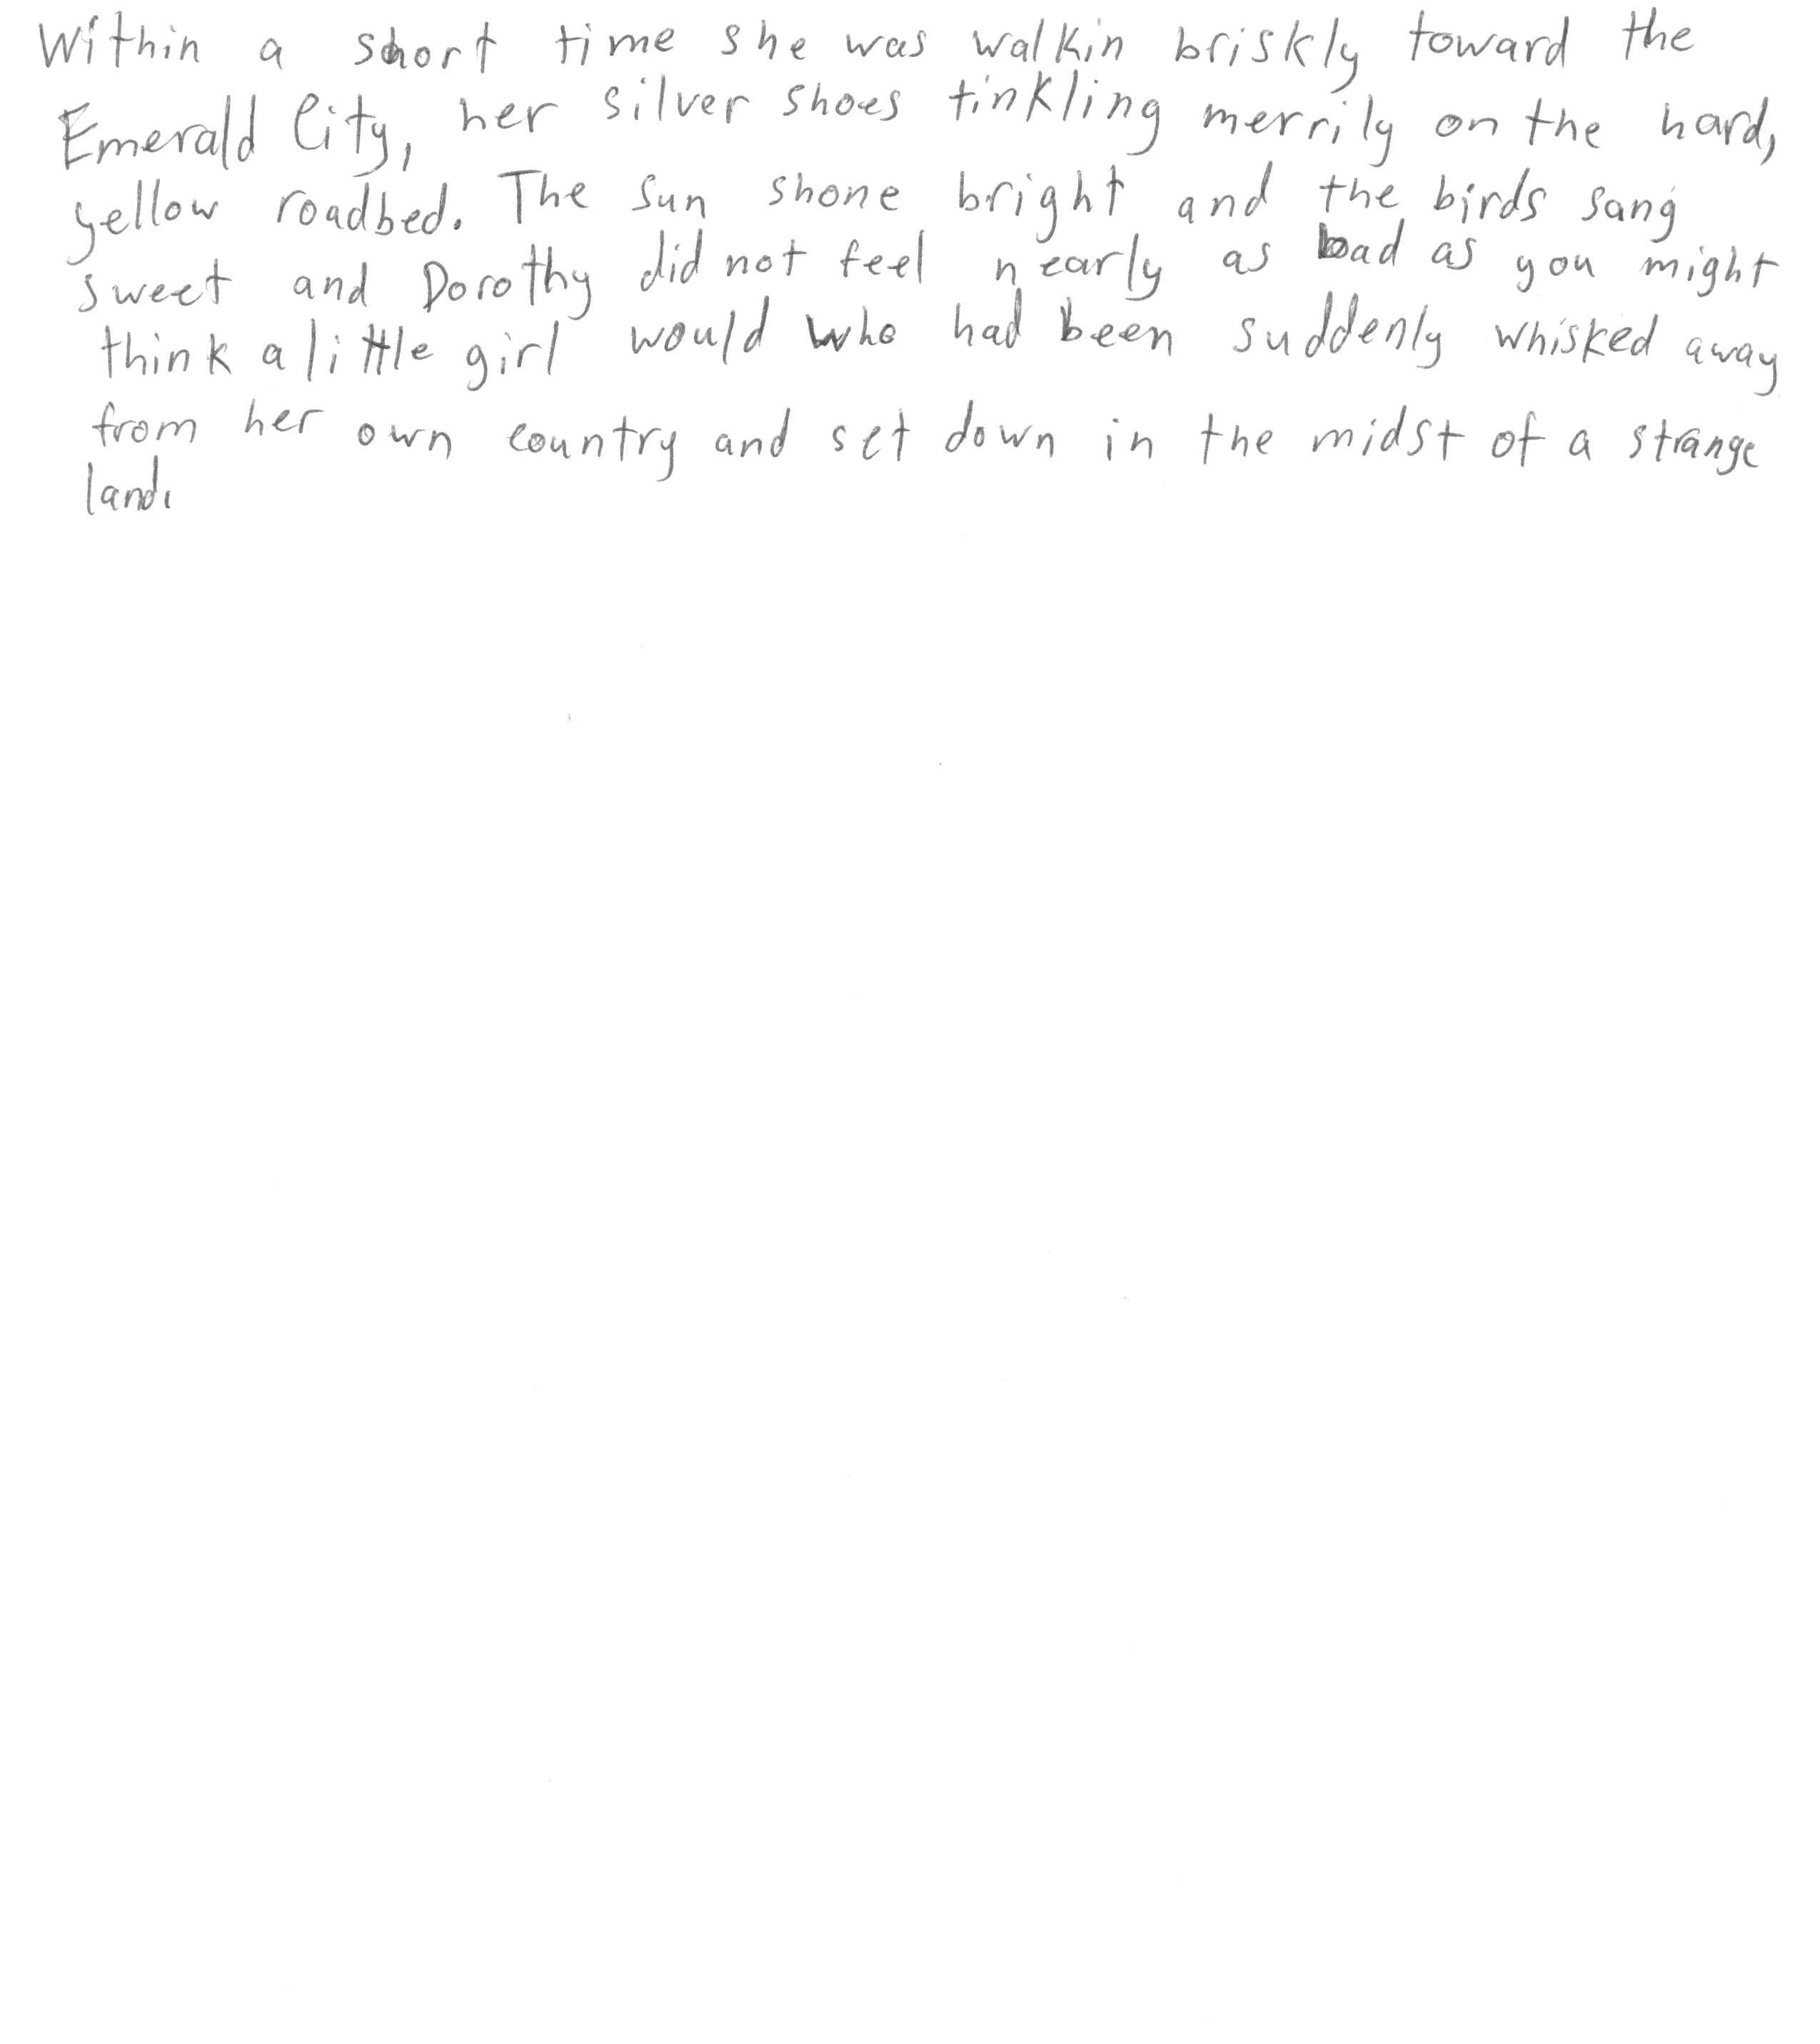 Within a short time she was walkin briskly toward the
Emerald City, her silver shoes tinkling merrily on the hard,
yellow roadbed. The sun shone bright and the birds sang
sweet and Dorothy did not feel nearly as bad as you might
think a little girl would who had been suddenly whisked away
from her own country and set down in the midst of a strange
land.